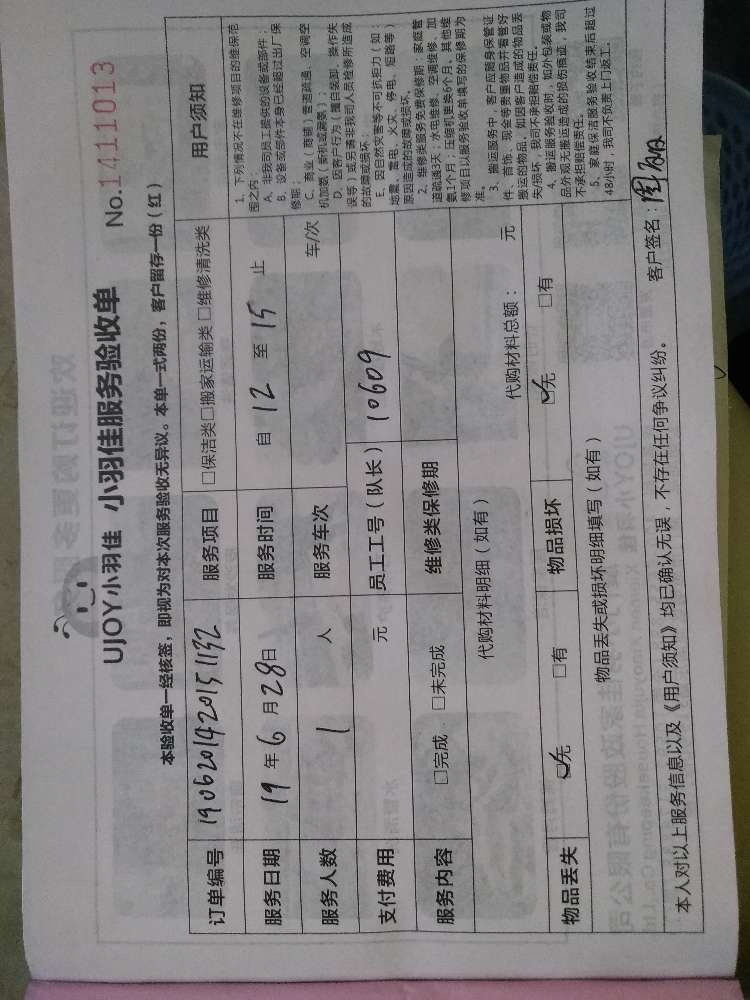 UJOY小羽佳 小羽佳服务验收单 No.1411013
本验收单一经核签，即视为对本次服务验收无异议。本单一式两份，客户留存一份（红）
订单编号 1906201420151132 服务项目 □保洁类□搬家运输类□维修清洗类
服务日期 19年6月28日 服务时间 自12至15止
服务人数 1人 服务车次 车/次
支付费用 元 员工工号（队长） 10609
服务内容 □完成 □未完成 维修类保修期
代购材料明细（如有） 代购材料总额： 元
物品丢失 ☑无 □有 物品损坏 ☑无 □有
物品丢失或损坏明细填写（如有）
用户须知
1、下列情况不在维修项目的维保范
围之内：
A、非我司员工提供的设备或部件；
B、设备或部件本身已经超过出厂保
修期；
C、商业（商铺）管道疏通、空调空
机加氨（新机或漏氨）
D、因客户行为（擅自装卸、操作失
误等）或另请非我司人员检修所造成
的故障或损坏。
E、因自然灾害等不可抗拒力（如
地震、雷电、火灾、停电、短路等）
原因造成的故障或损坏。
2、维修类服务免费保修期：家庭管
道疏通3天；水电维修、空调维修、加
氨1个月；压缩机更换6个月、其他维
修项目以服务验收单填写的保修期为
准。
3、搬运服务中，客户应随身保管证
件、首饰、现金等贵重物品并看管好
搬运的物品，如因客户造成的物品丢
失/损坏，我司不承担赔偿责任。
4、搬运服务验收时，如外包装或物
品外观无搬运造成的损伤痕迹，我司
不承担赔偿责任。
5、家庭保洁服务验收结束后超过
48小时，我司不负责上门返工。
本人对以上服务信息以及《用户须知》均已确认无误，不存在任何争议纠纷。 客户签名：